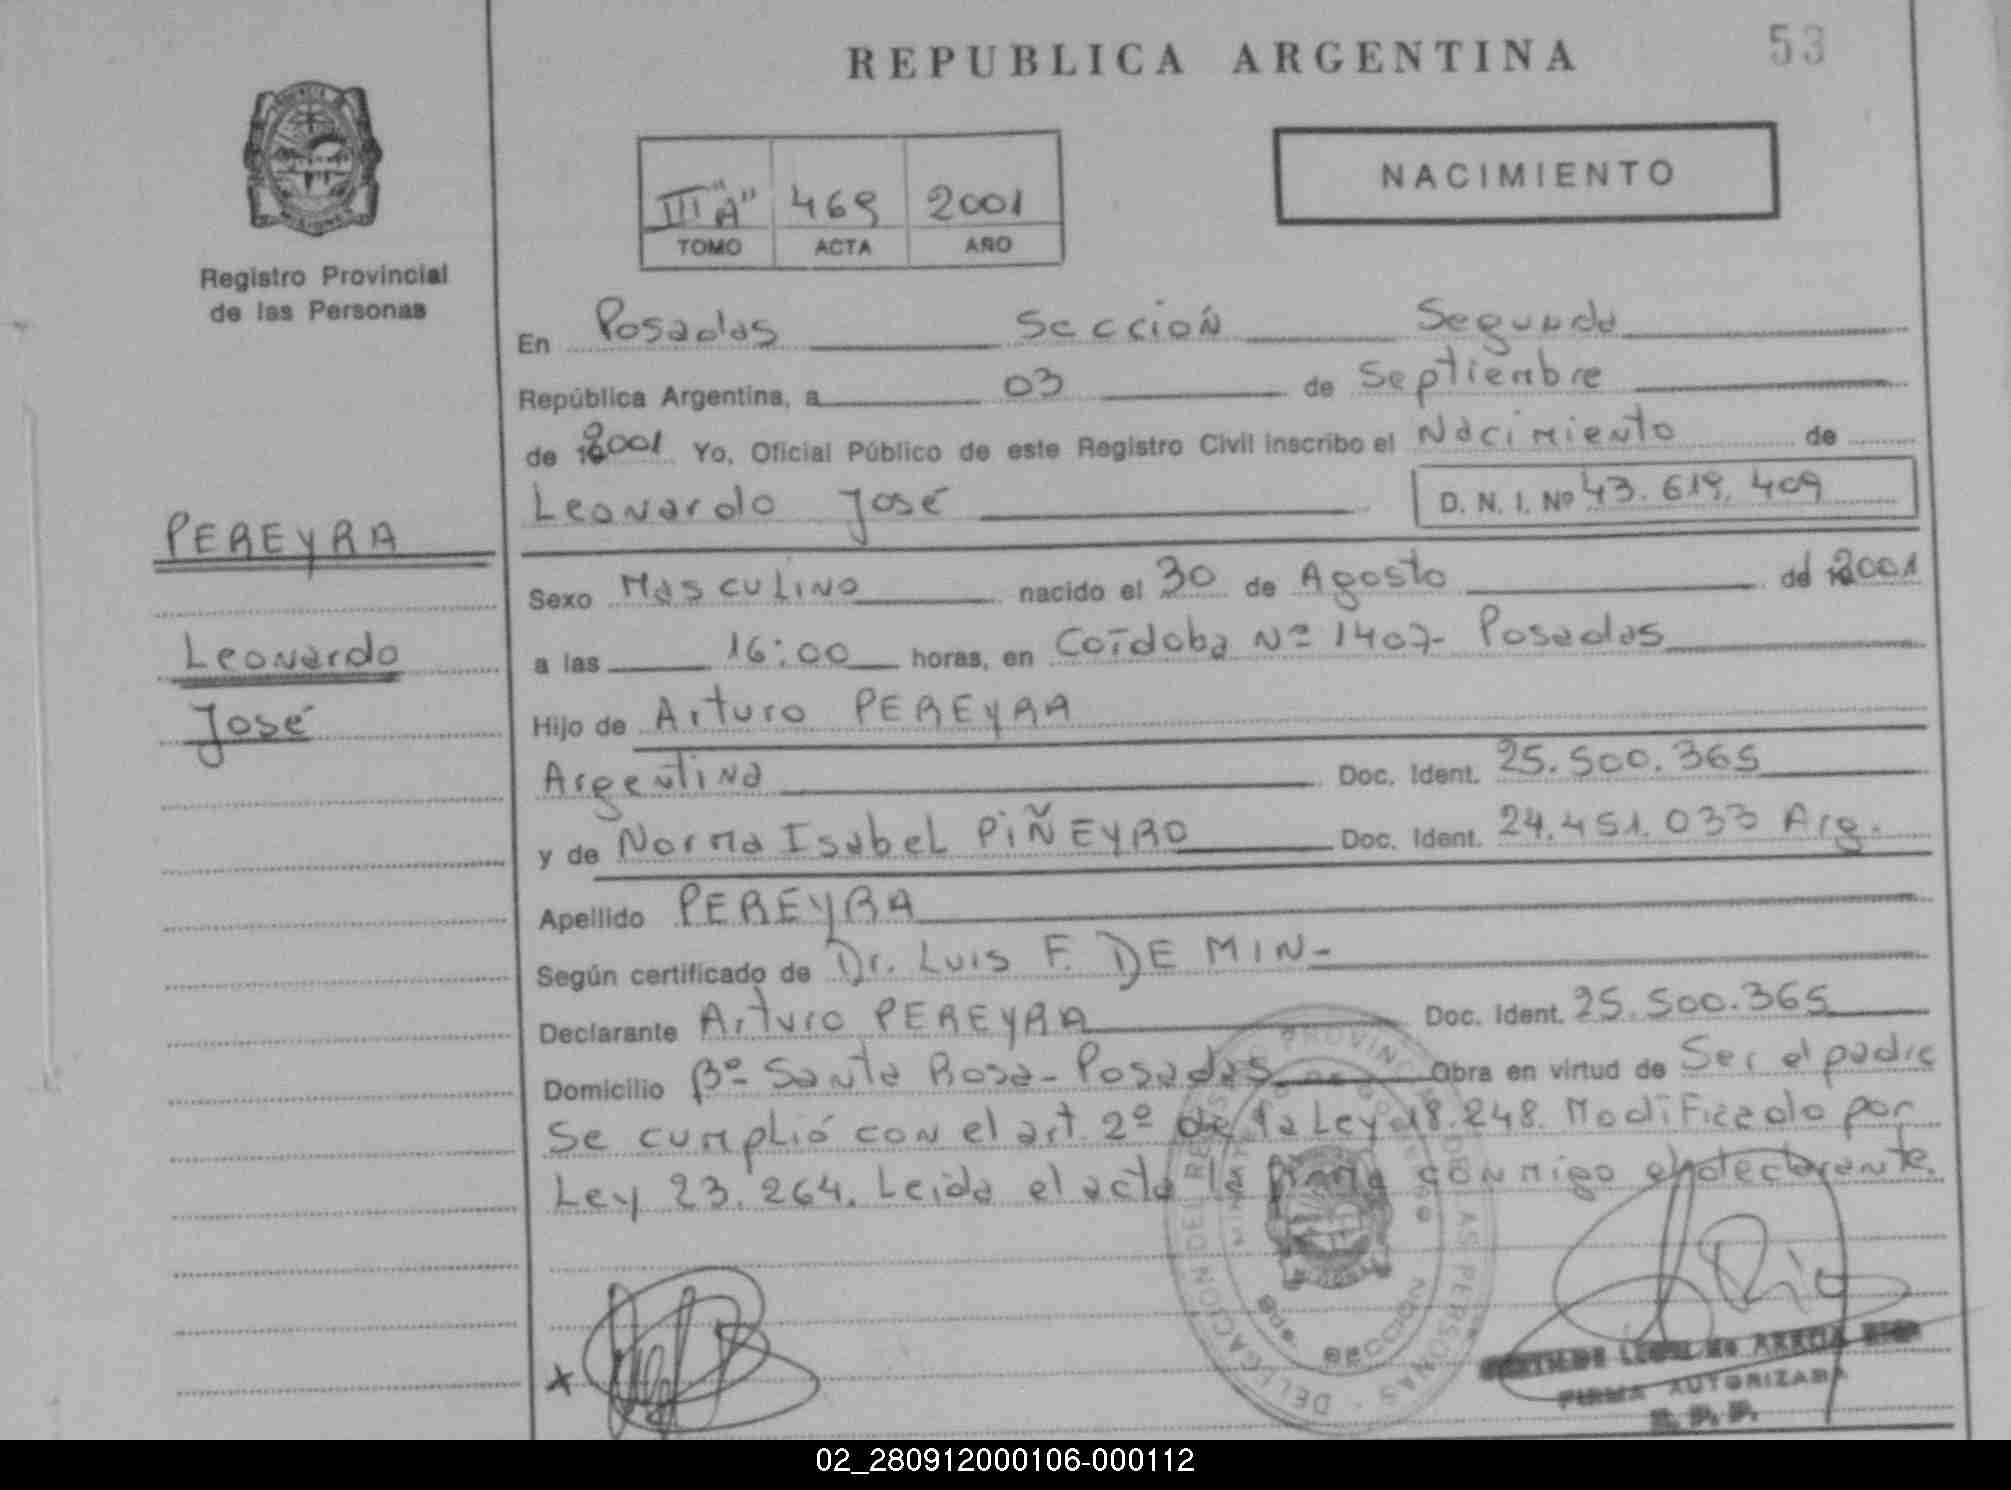 REPUBLICA ARGENTINA
53
NACIMIENTO
III "A" 469 2001
TOMO ACTA AÑO
Registro Provincial
de las Personas
PEREYRA
Leonardo
José
En Posadas Sección Segunda
República Argentina, a 03 de Septiembre
de 2001 Yo, Oficial Público de este Registro Civil inscribo el Nacimiento de
Leonardo José D. N. I. Nº 43.619.409
Sexo Masculino nacido el 30 de Agosto de 2001
a las 16:00 horas, en Córdoba Nº 1407- Posadas
Hijo de Arturo PEREYRA
Argentina Doc. Ident. 25.500.365
y de Norma Isabel PIÑEYRO Doc. Ident. 24.451.033 Arg.
Apellido PEREYRA
Según certificado de Dr. Luis F. DE MIN-
Declarante Arturo PEREYRA Doc. Ident. 25.500.365
Domicilio Bº Santa Rosa- Posadas Obra en virtud de Ser el padre
Se cumplió con el art. 2º de la Ley 18.248. Modificado por
Ley 23.264. Leida el acta la firma conmigo el declarante.
DELEGACION DEL REGISTRO PROVINCIAL DE LAS PERSONAS
SECCION
FIRMA AUTORIZADA
R. P. P.
02_280912000106-000112